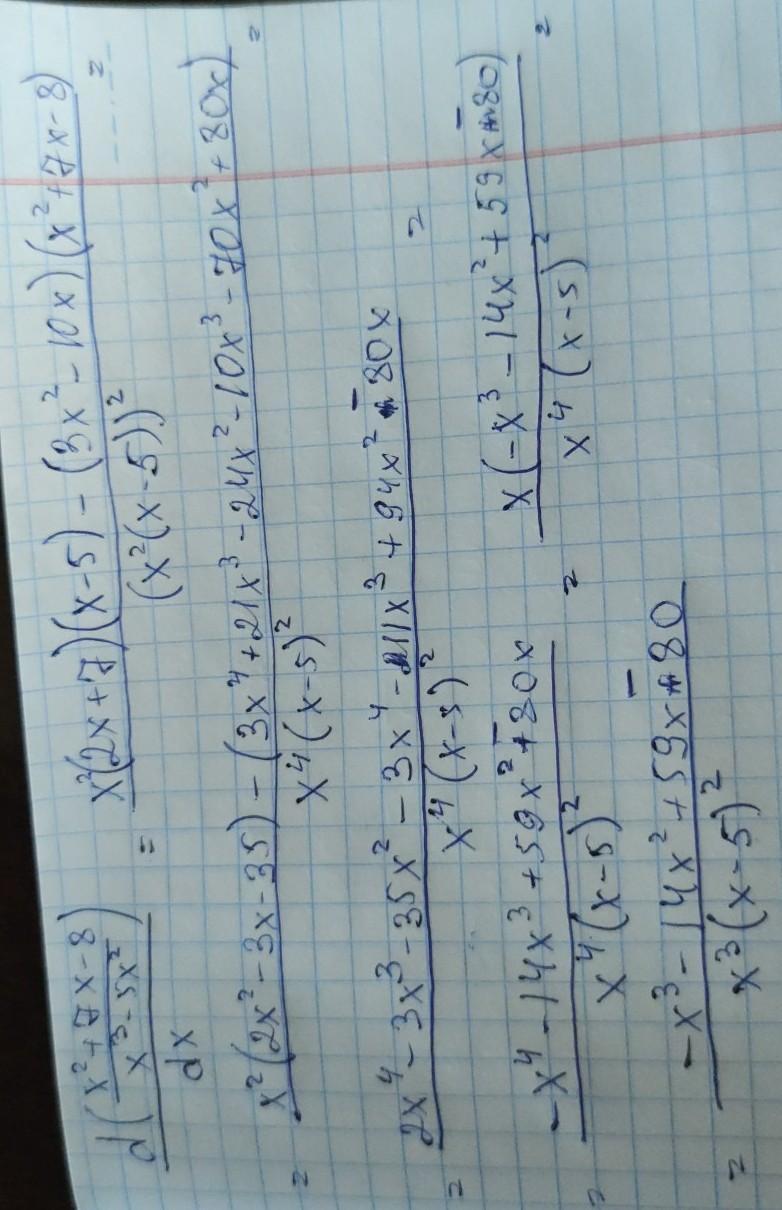 d((x²+7x-8)/(x³-5x²))/dx = (x²(2x+7)(x-5) - (3x²-10x)(x²+7x-8))/(x²(x-5))² =
= (x²(2x²-3x-35) - (3x⁴+21x³-24x²-10x³-70x²+80x))/(x⁴(x-5)²) =
= (2x⁴-3x³-35x²-3x⁴-11x³+94x²-80x)/(x⁴(x-5)²) =
= (-x⁴-14x³+59x²-80x)/(x⁴(x-5)²) = (x(-x³-14x²+59x-80))/(x⁴(x-5)²) =
= (-x³-14x²+59x-80)/(x³(x-5)²)